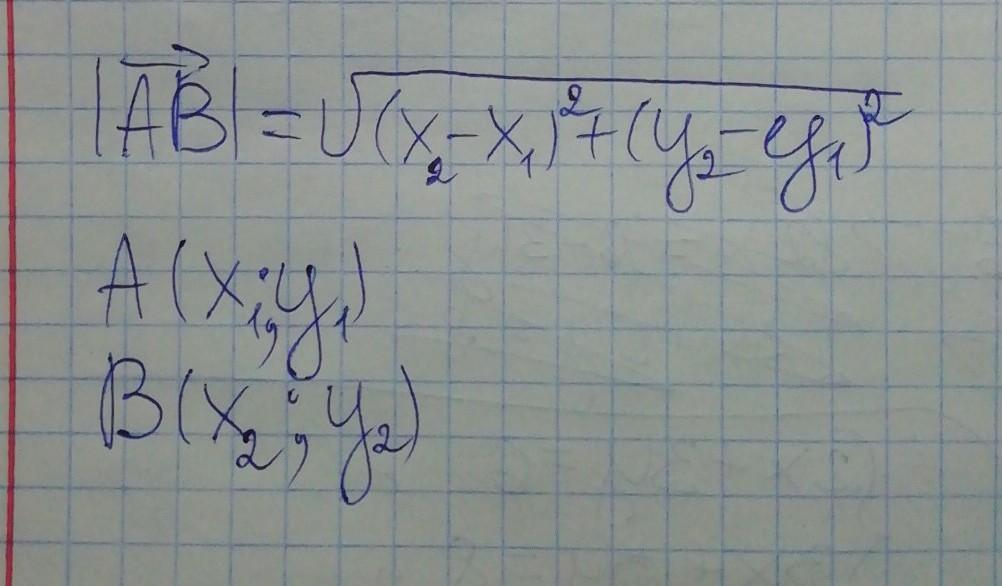 |AB⃗| = √(x₂ - x₁)² + (y₂ - y₁)²
A (x₁; y₁)
B (x₂; y₂)